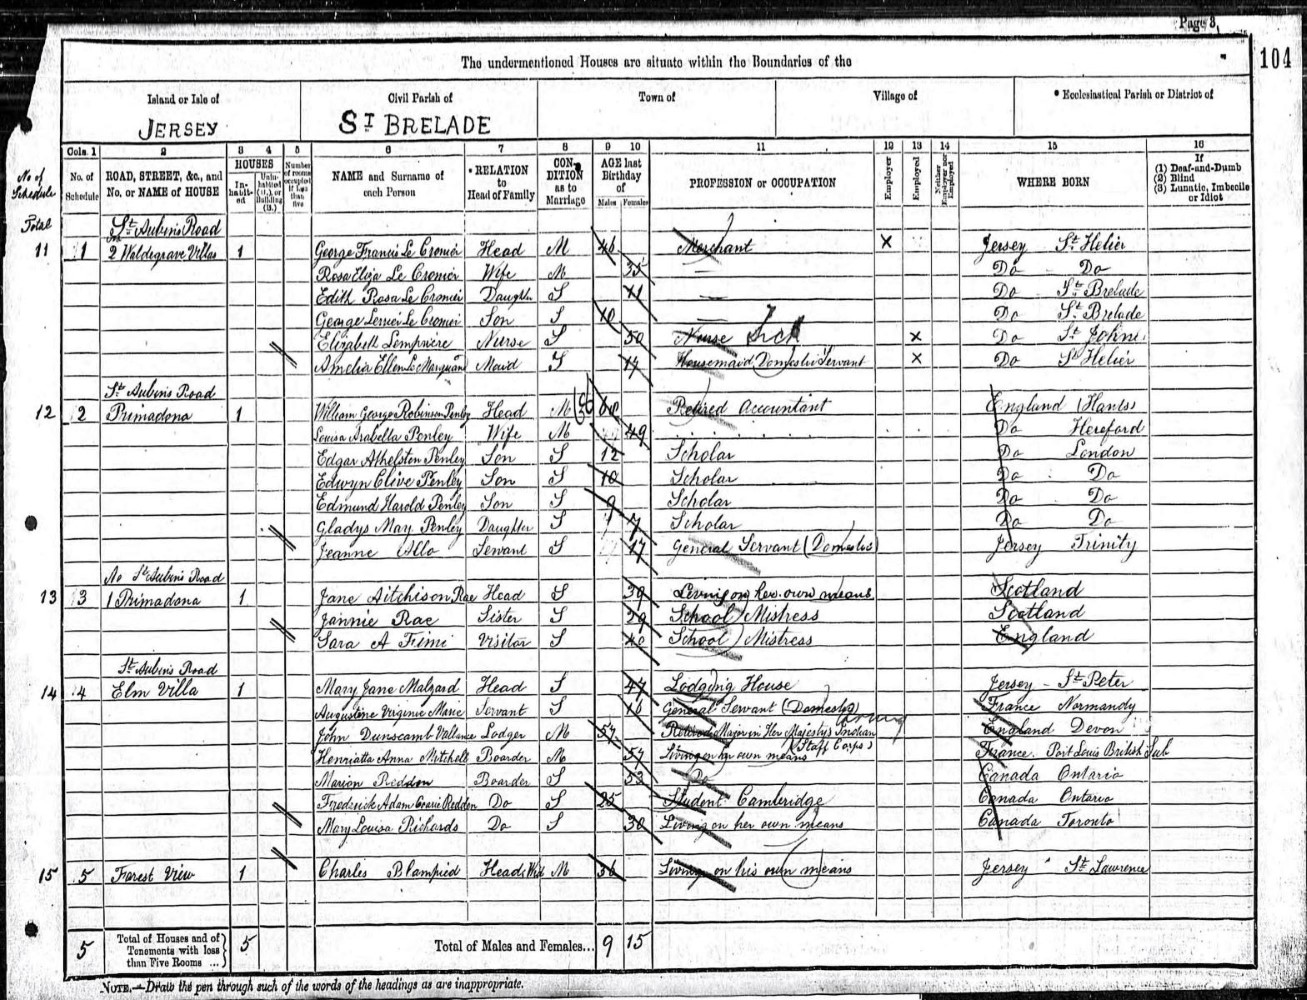 Page 3
104
The undermentioned Houses are situate within the Boundaries of the
Island or Isle of
JERSEY
Civil Parish of
ST BRELADE
Town of
Village of
* Ecclesiastical Parish or District of
Cols. 1 2 3 4 5 6 7 8 9 10 11 12 13 14 15 16
No. of Schedule
ROAD, STREET, &c., and No. or NAME of HOUSE
HOUSES
Inhabited
Uninhabited (U.), or Building (B.)
Number of rooms occupied if less than five
NAME and Surname of each Person
RELATION to Head of Family
CONDITION as to Marriage
AGE last Birthday of
Males Females
PROFESSION or OCCUPATION
Employer
Employed
Neither Employer nor Employed
WHERE BORN
If (1) Deaf-and-Dumb (2) Blind (3) Lunatic, Imbecile or Idiot
No of Schedule
Total
St Aubin's Road
11 1 2 Waldegrave Villas 1 George Francis Le Cronier Head M 46 Merchant X Jersey St Helier
Rosa Eliza Le Cronier Wife M 35 Do Do
Edith Rosa Le Cronier Daughtr S 11 Do St Brelade
George Le Cronier Son S 10 Do St Brelade
Elizabeth Lemprière Nurse S 50 Nurse Sick X Do St Johns
Amelia Ellen Le Marquand Maid S 17 Housemaid Domestic Servant X Do St Helier
St Aubin's Road
12 2 Primadona 1 William George Robinson Penley Head M 68 Retired Accountant England (Hants)
Louisa Arabella Penley Wife M 49 Do Hereford
Edgar Athelstan Penley Son S 12 Scholar Do London
Edwyn Clive Penley Son S 10 Scholar Do Do
Edmund Harold Penley Son S 9 Scholar Do Do
Gladys May Penley Daughter S 7 Scholar Do Do
Jeanne Allo Servant S 17 General Servant (Domestic) Jersey Trinity
No St Aubin's Road
13 3 1 Primadona 1 Jane Aitchison Rae Head S 39 Living on her own means Scotland
Jannie Rae Sister S 29 School Mistress Scotland
Sara A Visitor S 40 School Mistress England
St Aubin's Road
14 4 Elm Villa 1 Mary Jane Malzard Head S 47 Lodging House Jersey St Peter
Augustine Virginie Marie Servant S 16 General Servant (Domestic) France Normandy
John Dunscomb Vallance Lodger M 57 Retired Major in Her Majesty's Indian Army England Devon
(Staff Corps)
Henrietta Anna Mitchell Boarder M 57 Living on her own means France. Port Louis British Sub
Marion Reddon Boarder S 53 Do Canada Ontario
Frederick Adam Reddon Do S 25 Student Cambridge Canada Ontario
Mary Louisa Richards Do S 30 Living on her own means Canada Toronto
15 5 Forest View 1 Charles Blampied Head Wid M 56 Living on his own means Jersey St Lawrence
5 Total of Houses and of Tenements with less than Five Rooms ... 5 Total of Males and Females... 9 15
NOTE.—Draw the pen through such of the words of the headings as are inappropriate.